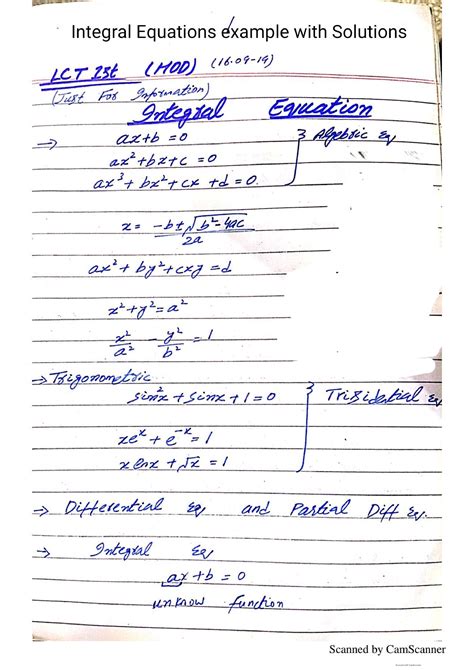 Integral Equations example with Solutions
LCT 1st (HOD) (16-09-19)
(Just For Information)
Integral Equation
→ ax+b = 0 } Algebric Eq
ax²+bx+c = 0
ax³+bx²+cx+d = 0.
x = -b±√b²-4ac / 2a
ax²+by²+cxy = d
x²+y² = a²
x²/a² - y²/b² = 1
→ Trigonometric
sin²x + sinx + 1 = 0 } Eq
xeˣ + e⁻ˣ = 1
x lnx + √x = 1
→ Differential Eq and Partial Diff Eq.
→ Integral Eq
ax+b = 0
unknow function
Scanned by CamScanner